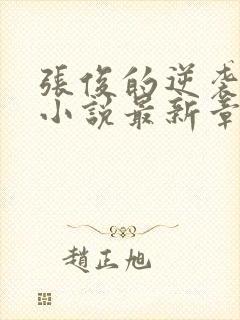 張俊的逆袭
小說最新章
趙正旭